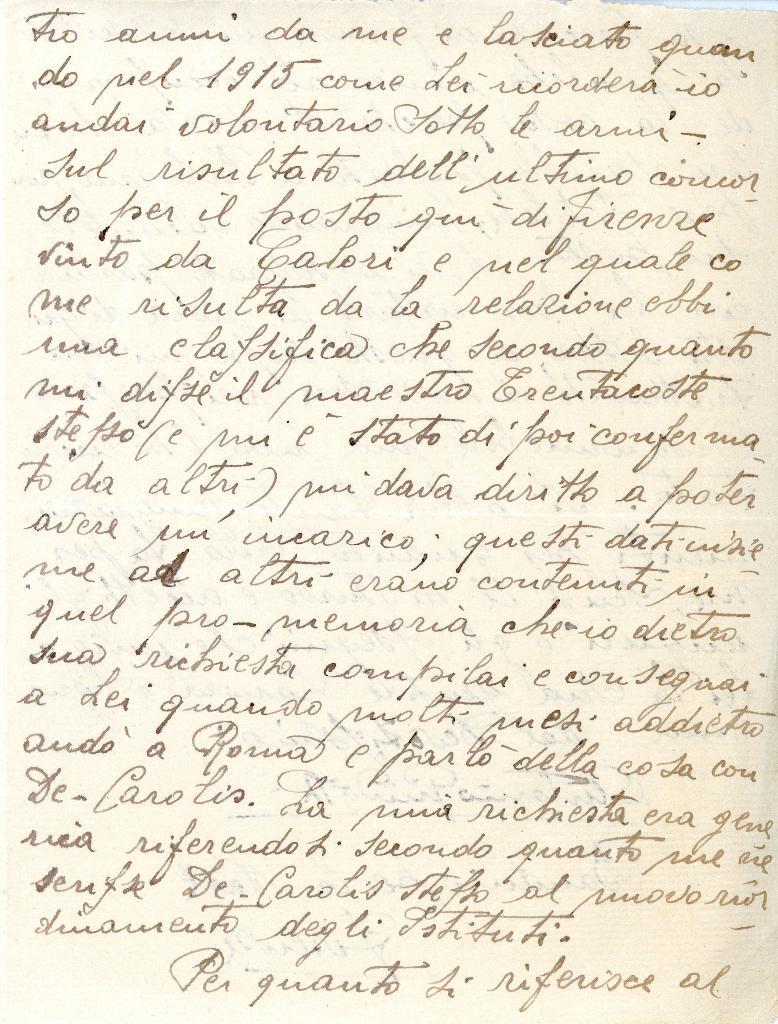 tro anni da me e lasciato quan
do nel 1915 come Lei ricorderà io
andai volontario sotto le armi-
sul risultato dell'ultimo concor-
so per il posto qui di Firenze
vinto da Calori e nel quale co
me risulta da la relazione ebbi
una classifica che secondo quanto
mi disse il maestro Trentacoste
stesso (e mi è stato di poi conferma-
to da altri) mi dava diritto a poter
avere un'incarico; questi dati insie
me ad altri erano contenuti in
quel pro-memoria che io dietro
sua richiesta compilai e consegnai
a Lei quando molti mesi addietro
andò a Roma e parlò della cosa con
De-Carolis. La mia richiesta era gene
rica riferendosi secondo quanto me ne
scrisse De-Carolis stesso al nuovo rior-
dinamento degli Istituti.
Per quanto si riferisce al